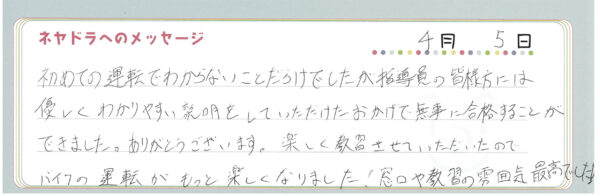 ネヤドラへのメッセージ
4月 5日
初めての運転でわからないことだらけでしたが指導員の皆様方には
優しくわかりやすい説明をしていただけたおかげで無事に合格することが
できました。ありがとうございます。楽しく教習させていただいたので
バイクの運転がもっと楽しくなりました!窓口や教習の雰囲気最高でした